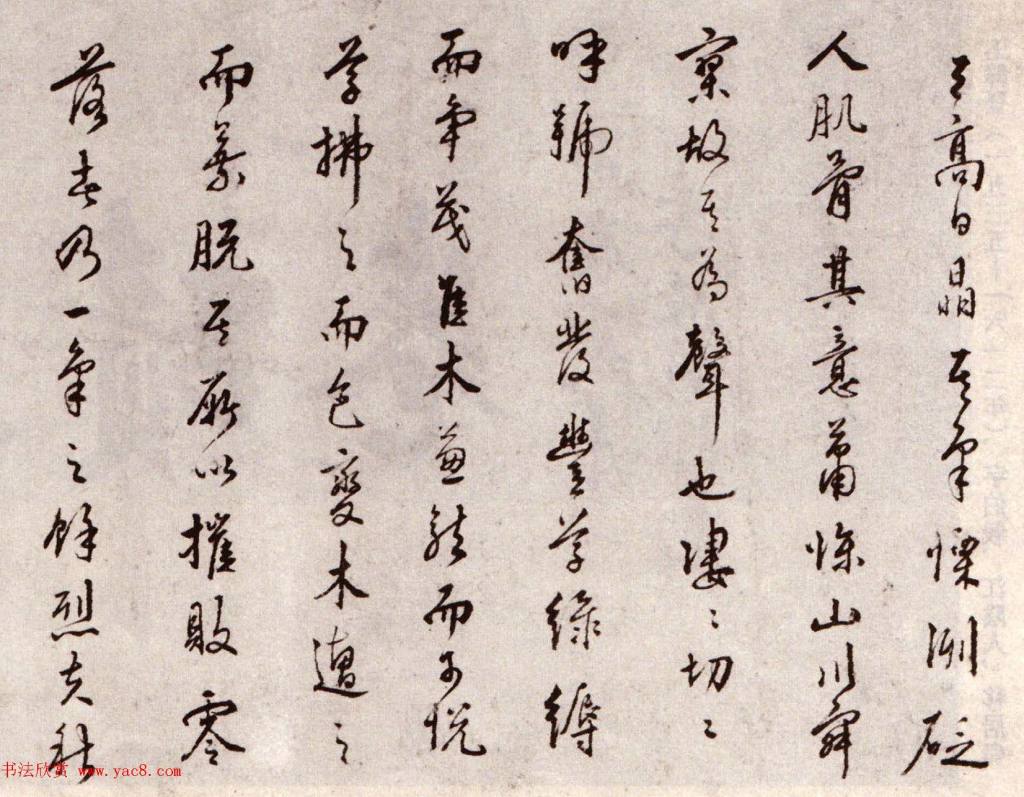 天高日晶其氣慄冽砭
人肌骨其意蕭條山川寂
寥故其為聲也淒々切々
呼號奮發豐草綠縟
而爭茂佳木蔥蘢而可悅
草拂之而色變木遭之
而葉脫其所以摧敗零
落者乃一氣之餘烈夫秋
书法欣赏 www.yac8.com